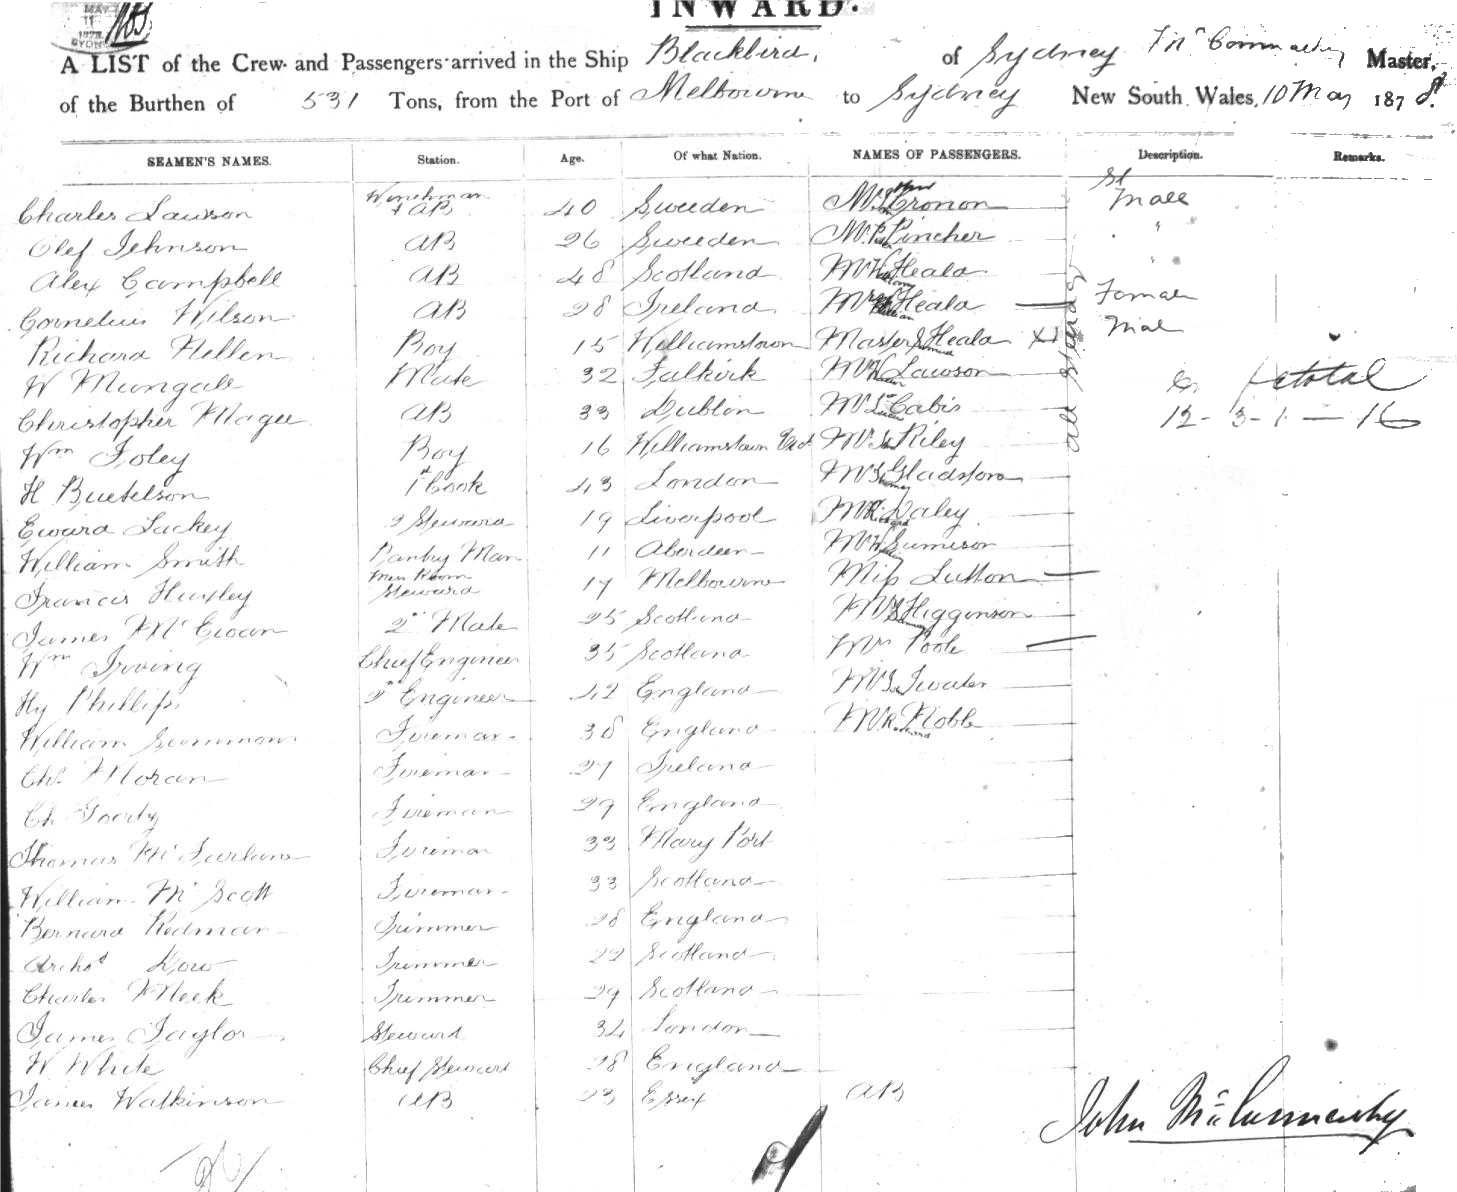 INWARD.
MAY 11 1878 SYDN
A LIST of the Crew and Passengers arrived in the Ship Blackbird, of Sydney Master,
of the Burthen of 531 Tons, from the Port of Melbourne to Sydney New South Wales, 10 May 1878.
SEAMEN'S NAMES. Station. Age. Of what Nation. NAMES OF PASSENGERS. Description. Remarks.
Charles Lawson Winchman + AB 40 Sweeden Mr Cronon St Male
Olef Johnson AB 26 Sweeden Mr Pincher "
Alex Campbell AB 48 Scotland Mr Heala "
Cornelius Wilson AB 28 Ireland Mrs Heala Female
Richard Hellen Boy 15 Williamstown Master Heala Male
W Mungall Mate 32 Falkirk Mr Lawson total
Christopher Magee AB 33 Dublin Mr Cabis 12 - 3 - 1 - 16
Wm Foley Boy 16 Williamstown Mr Riley
H Buetelson 1st Cook 43 London Mr Gladstone
Eward Lackey 2 Steward 19 Liverpool Mr Richard Daley
William Smith Pantry Man 11 Aberdeen Mr Jumison
Francis Huxley Mess Room Steward 17 Melbourne Miss Sutton
James McEwan 2nd Mate 25 Scotland Mr Higginson
Wm Irving Chief Engineer 35 Scotland Mrs Poole
Hy Phillips 2nd Engineer 42 England Mr
William Fireman 38 England Mr Noble
Ch. Moran Fireman 27 Ireland
Ch Fireman 29 England
Thomas McFarlane Fireman 33 Mary Port
William Mc Scott Fireman 33 Scotland
Bernard Redman Trimmer 28 England
Archd Dow Trimmer 29 Scotland
Charles Meek Trimmer 29 Scotland
James Taylor Steward 34 London
W White Chief Steward 28 England
James Watkinson AB 23 Essex AB
all steerage
John